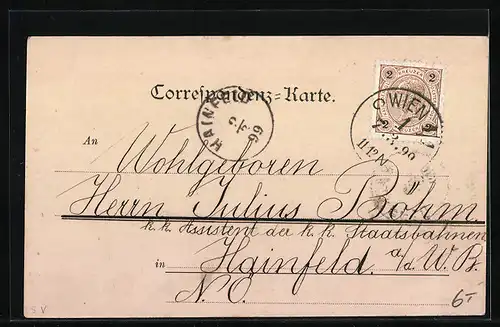 2 KREUZER 2
Correspondenz-Karte.
WIEN
HAINFELD
99
11 12 N
An
Wohlgeboren
Herrn Julius Böhm.
k. k. Assistent der k. k. Staatsbahnen
in Hainfeld. a/d. W. B.
N. Ö.
6-
S V